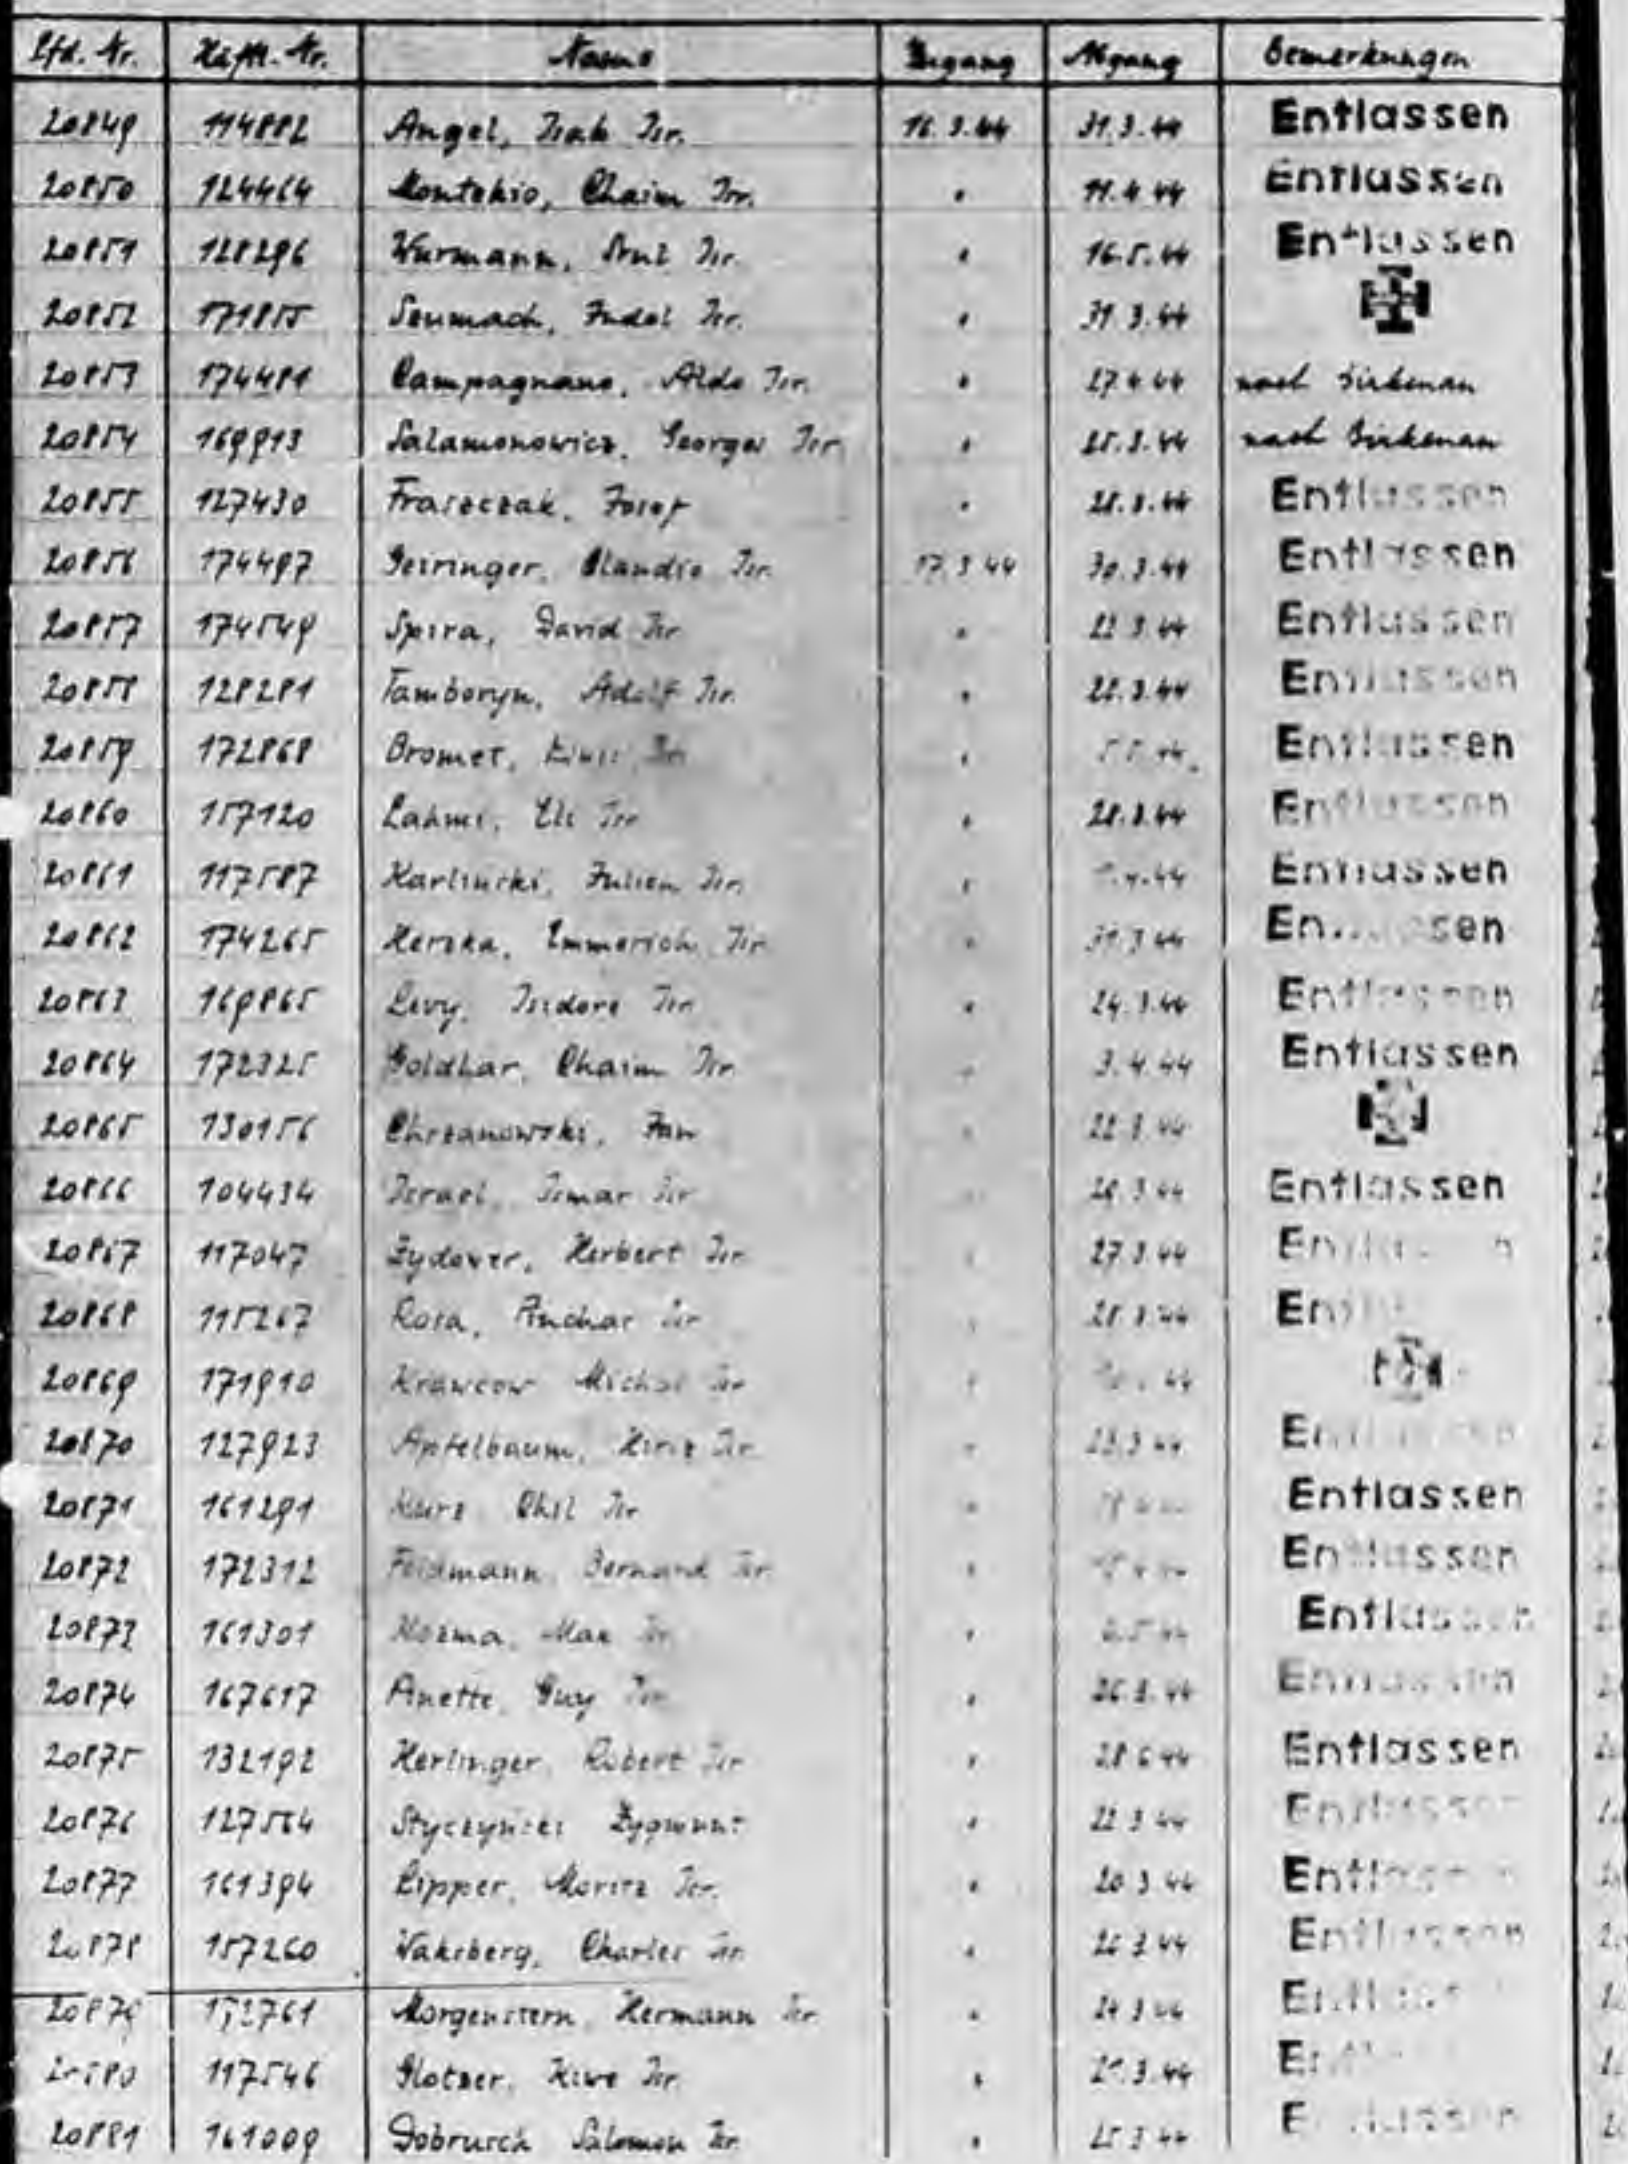 Lfd. Nr. Häftl.-Nr. Name Zugang Abgang Bemerkungen
20849 114882 Angel, Isak Isr. 16.3.44 31.3.44 Entlassen
20850 124464 Montekio, Chaim Isr. " 11.4.44 Entlassen
20851 128296 Wurmann, Srul Isr. " 16.5.44 Entlassen
20852 171855 Seumach, Judel Isr. " 31.3.44
20853 174481 Campagnano, Aldo Isr. " 27.4.44 nach Birkenau
20854 169913 Salamonowicz, Georges Isr. " 25.3.44 nach Birkenau
20855 127430 Fraszczak, Josef " 28.3.44 Entlassen
20856 174497 Geiringer, Claudio Isr. 17.3.44 30.3.44 Entlassen
20857 174549 Spira, David Isr. " 22.3.44 Entlassen
20858 128281 Tamboryn, Adolf Isr. " 28.3.44 Entlassen
20859 172868 Bromet, Isr. " Entlassen
20860 157120 Lahmi, Eli Isr. " 28.3.44 Entlassen
20861 117587 Karlinski, Julien Isr. " Entlassen
20862 174265 Herzka, Emmerich Isr. " 31.3.44 Entlassen
20863 169865 Levy, Isidore Isr. " 24.3.44 Entlassen
20864 172325 Goldhar, Chaim Isr. " 3.4.44 Entlassen
20865 130156 Chrzanowski, Jan " 22.3.44
20866 104434 Israel, Isr. " Entlassen
20867 117047 Zydower, Herbert Isr. " 27.3.44 Entlassen
20868 115267 Rosa, Isr. " 28.3.44
20869 171910 Krawcow Michal Isr. "
20870 127923 Apfelbaum, Isr. " 23.3.44 Entlassen
20871 161291 Kurz Chil Isr. " Entlassen
20872 172312 Feldmann, Bernard Isr. " Entlassen
20873 161301 Kozma, Max Isr. " Entlassen
20874 167617 Anette, Guy Isr. " 26.3.44 Entlassen
20875 132192 Herlinger, Robert Isr. " 28.6.44 Entlassen
20876 127564 Styczynski Zygmunt " 22.3.44 Entlassen
20877 161394 Lipper, Moritz Isr. " 20.3.44 Entlassen
20878 157260 Waksberg, Charles Isr. " Entlassen
20879 172761 Morgenstern, Hermann Isr. " 24.3.44 Entlassen
20880 117546 Glotzer, Isr. "
20881 161009 Dobrusch Salomon Isr. " 25.3.44 Entlassen